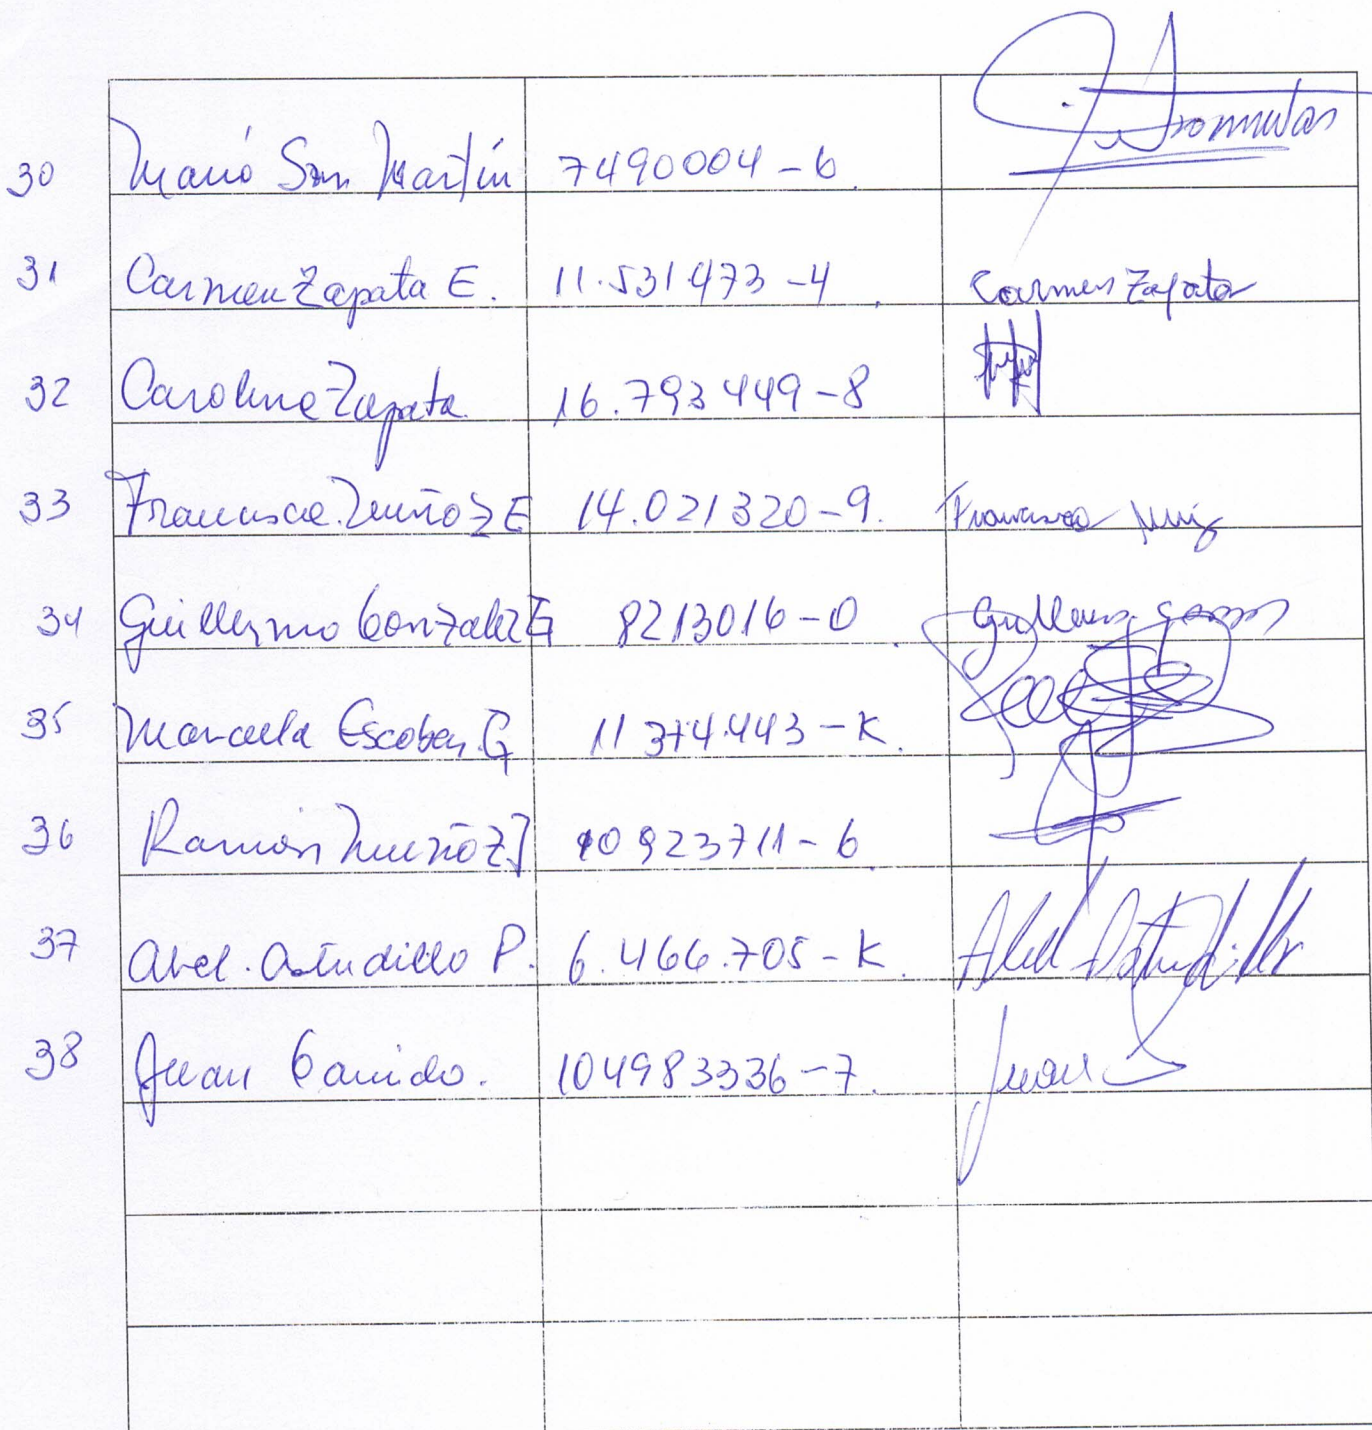 30 Mario San Martín 7490004-6
31 Carmen Zapata E. 11.531.473-4 Carmen Zapata
32 Carolina Zapata 16.793.449-8
33 Francisca Muñoz E 14.021320-9. Francisca Muñoz
34 Guillermo Gonzalez G 8213016-0 Guillermo
35 Marcela Escobar G 11.374.443-K.
36 Ramón Muñoz J 10923711-6
37 Abel Astudillo P. 6.466.705-K. Abel Astudillo
38 Juan Garrido. 104983336-7. Juan